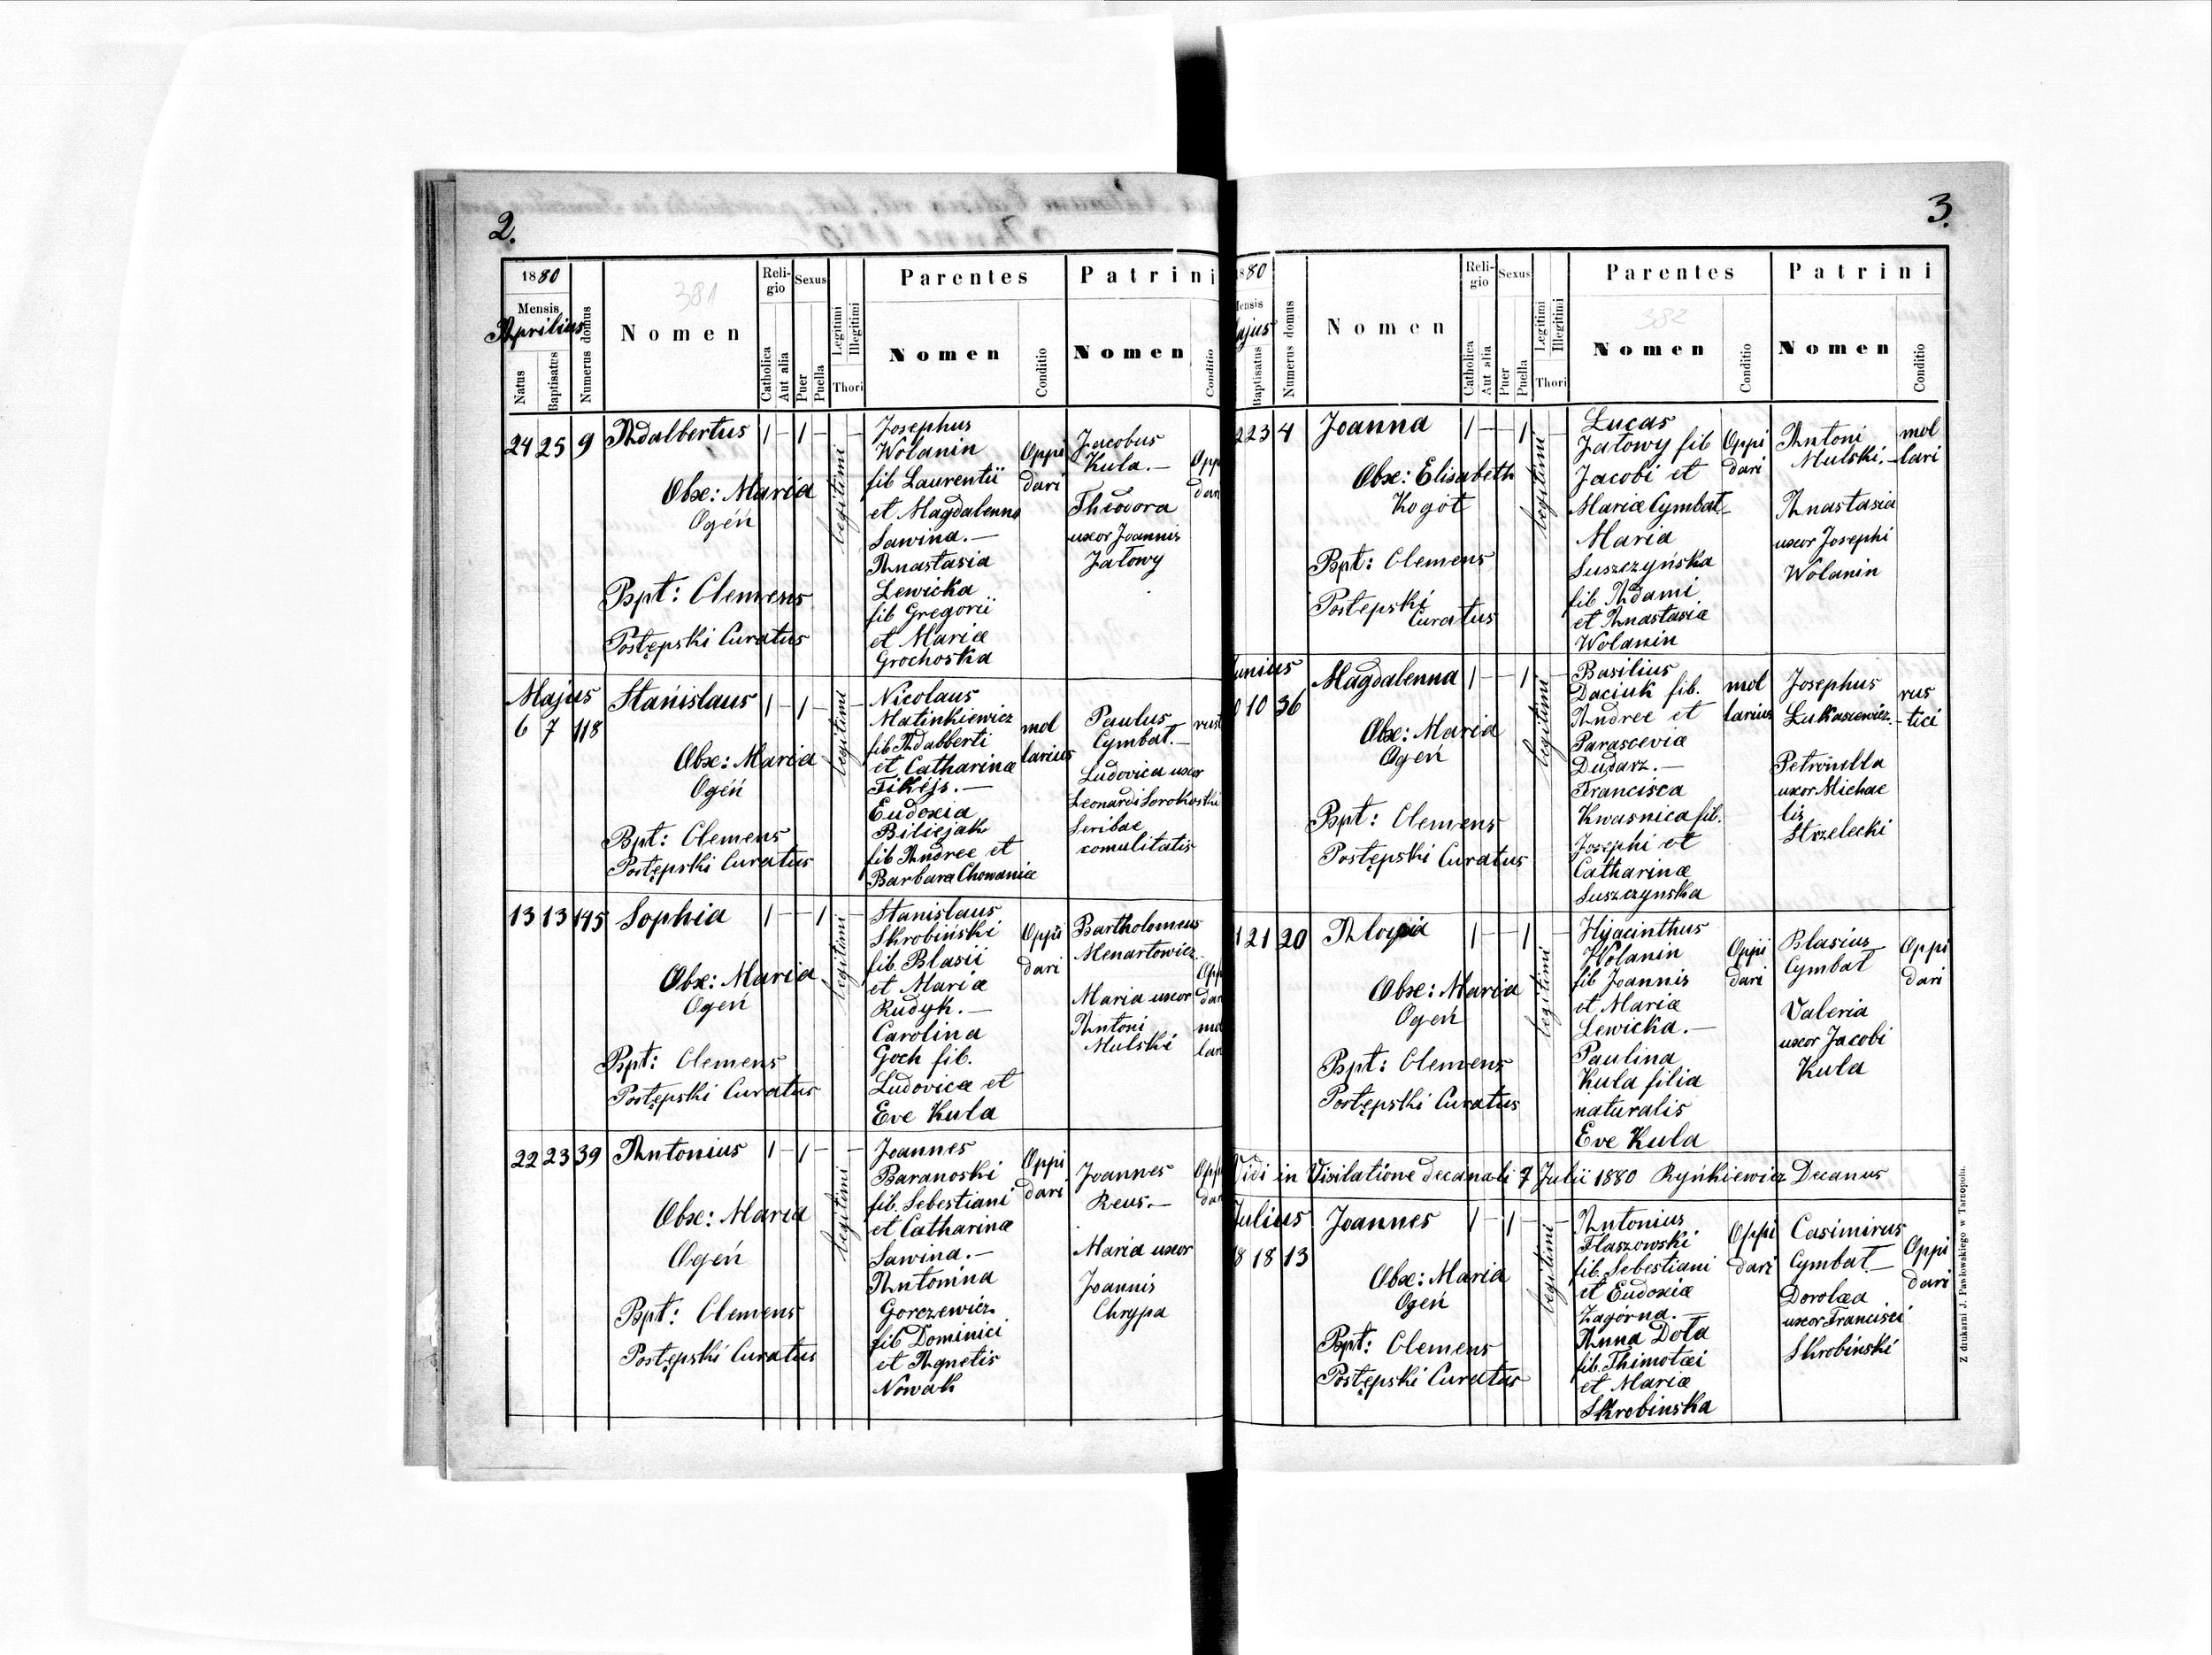 2.
1880
Mensis
Aprilius
Natus
Baptisatus
Numerus domus
381
Nomen
Religio
Catholica
Aut alia
Sexus
Puer
Puella
Legitimi
Illegitimi
Thori
Parentes
Nomen
Conditio
Patrini
Nomen
Conditio
24 25 9 Adalbertus 1 – 1 – –
Obse: Maria
Ogéń
Bpt: Clemens
Postępski Curatus
legitimi
Josephus
Wolanin
fib Laurentii
et Magdalenna
Sawina. —
Anastasia
Lewicka
fib Gregorii
et Mariæ
Grochoska
Oppi
dari
Jacobus
Kula. —
Theodora
uxor Joannis
Jatowy
Opp
dari
Majus
6 7 118 Stanislaus 1 – 1 – –
Obse: Maria
Ogéń
Bpt: Clemens
Postępski Curatus
legitimi
Nicolaus
Matinkiewicz
fib Adabberti
et Catharinæ
Fikéjs. —
Eudoxia
Biliejak
fib Andree et
Barbara Chowanicæ
mol
larius
Paulus
Cymbat. —
Ludovica uxor
Leonardi Sorokoski
Scribae
comulitatis
rust
13 13 145 Sophia 1 – – 1 –
Obse: Maria
Ogeń
Bpt: Clemens
Postępski Curatus
legitimi
Stanislaus
Skrobiński
fib. Blasii
et Mariæ
Rudyk. —
Carolina
Goch fib.
Ludovicæ et
Eve Kula
Oppi
dari
Bartholomeus
Menartowicz
Maria uxor
Antoni
Mulski
Opp
dar
mol
lar
22 23 39 Antonius 1 – 1 – –
Obse: Maria
Ogeń
Bpt: Clemens
Postępski Curatus
legitimi
Joannes
Baranoski
fib. Sebestiani
et Catharinæ
Sawina. —
Antonina
Gorczewicz
fib Dominici
et Agnetis
Nowak
Oppi
dari
Joannes
Reus. —
Maria uxor
Joannis
Chrypa
Opp
dar
3.
80
Mensis
ajus
Baptisatus
Numerus domus
Nomen
Religio
Catholica
Aut alia
Sexus
Puer
Puella
Legitimi
Illegitimi
Thori
Parentes
382
Nomen
Conditio
Patrini
Nomen
Conditio
2 23 4 Joanna 1 – – 1 –
Obse: Elisabeth
Kogót
Bpt: Clemens
Postępski
Curatus
legitimi
Lucas
Jatowy fib
Jacobi et
Mariæ Cymbat –
Maria
Suszczyńska
fib Adami
et Anastasiæ
Wolanin
Oppi
dari
Antoni
Mulski. –
Anastasia
uxor Josephi
Wolanin
mol
lari
unius
10 36 Magdalenna 1 – – 1 –
Obse: Maria
Ogeń
Bpt: Clemens
Postępski Curatus
legitimi
Basilius
Daciuk fib.
Andree et
Parascevia
Dudarz. —
Francisca
Kwasnica fib.
Josephi et
Catharinæ
Suszczynska
mol
larius
Josephus
Lukasiewicz. –
Petronella
uxor Michae
lis
Strzelecki
rus
tici
1 21 20 1 – – 1 –
Obse: Maria
Ogeń
Bpt: Clemens
Postępski Curatus
legitimi
Hyacinthus
Wolanin
fib Joannis
et Mariæ
Lewicka. —
Paulina
Kula filia
naturalis
Eve Kula
Oppi
dari
Blasius
Cymbat
Valeria
uxor Jacobi
Kula
Oppi
dari
Vidi in Visitatione decanali 7 Julii 1880 Ryńkiewicz Decanus
Julius
8 18 13 Joannes 1 – 1 – –
Obse: Maria
Ogeń
Bpt: Clemens
Postępski Curatus
legitimi
Antonius
Flaszowski
fib. Sebestiani
et Eudoxiæ
Zagórna. —
Anna Dota
fib. Thimotæi
et Mariæ
Skrobinska
Oppi
dari
Casimirus
Cymbat —
Dorotæa
uxor Francisci
Skrobiński
Oppi
dari
Z drukarni J. Pawłowskiego w Tarnopolu.